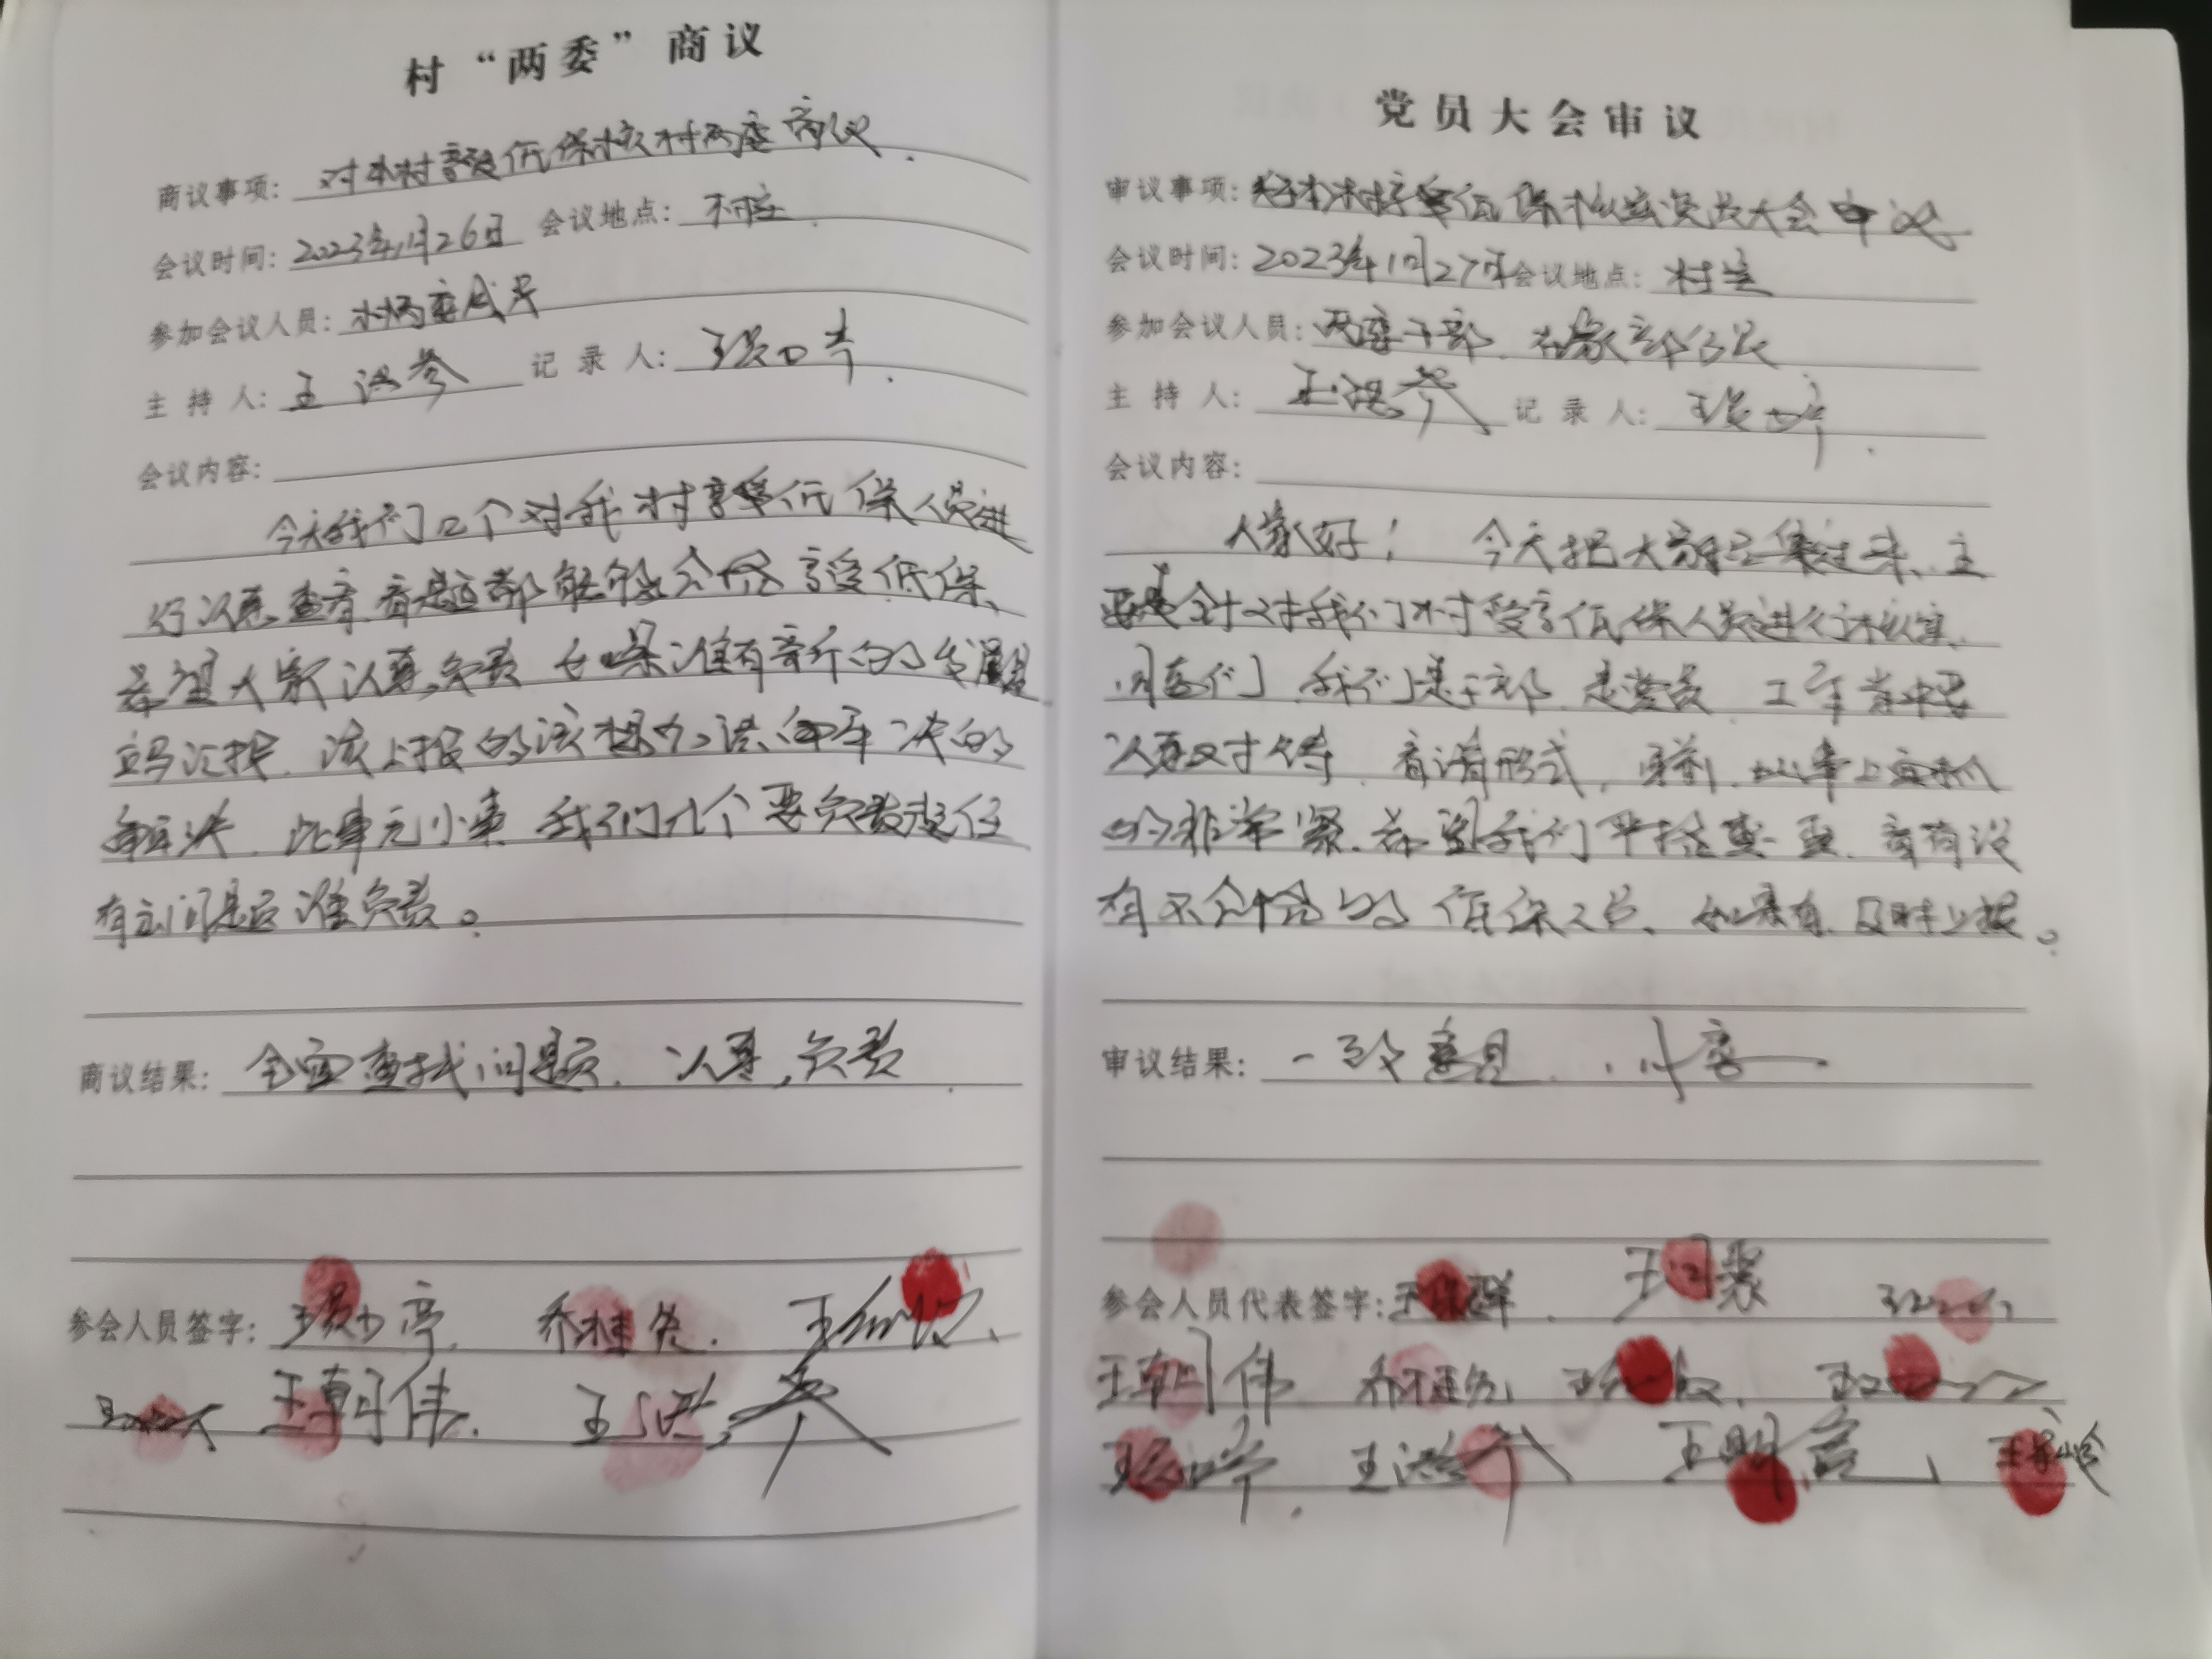 村“两委”商议
商议事项：对本村享受低保核村两委商议.
会议时间：2023年1月26日 会议地点：村室.
参加会议人员：村两委成员
主持人：王洪参 记录人：王
会议内容：
今天我们几个对我村享受低保人员进
行认真查看,看是否都能够合格享受低保、
希望大家认真,负责 如果谁有新的发现
立马汇报. 该上报的该想办法
解决. 此事无小事 我们几个要负责责任
有问题谁负责。
商议结果：全面查找问题. 认真,负责.
参会人员签字：王 亭. 乔桂 . 王
王朝伟. 王洪参
党员大会审议
审议事项：对本村享受低保核实党员大会审议
会议时间：2023年1月27日 会议地点：村室
参加会议人员：两委干部. 在家部分党员
主持人：王洪参 记录人：王
会议内容：
大家好！ 今天把大家召集过来、主
要是针对我们村受享低保人员进行核实、
同志们 我们是干部 是党员 工作当中要
认真对待. 看清形式, 目前, 此事上面抓
的非常紧.希望我们严格查一查. 看有没
有不合格的低保人员、如果有.及时上报。
审议结果：一致意见.
参会人员代表签字：王 群. 王
王朝伟 乔桂 王
王 王洪参 王明 王